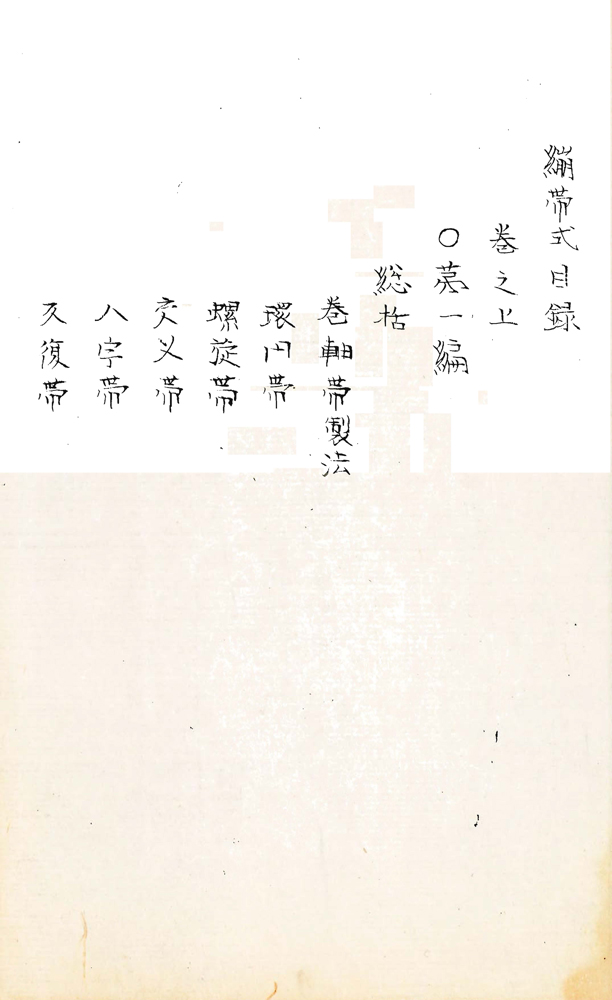 繃帯式目録
巻之上
〇第一編
総括
巻軸帯製法
環円帯
螺旋帯
交叉帯
八字帯
反復帯